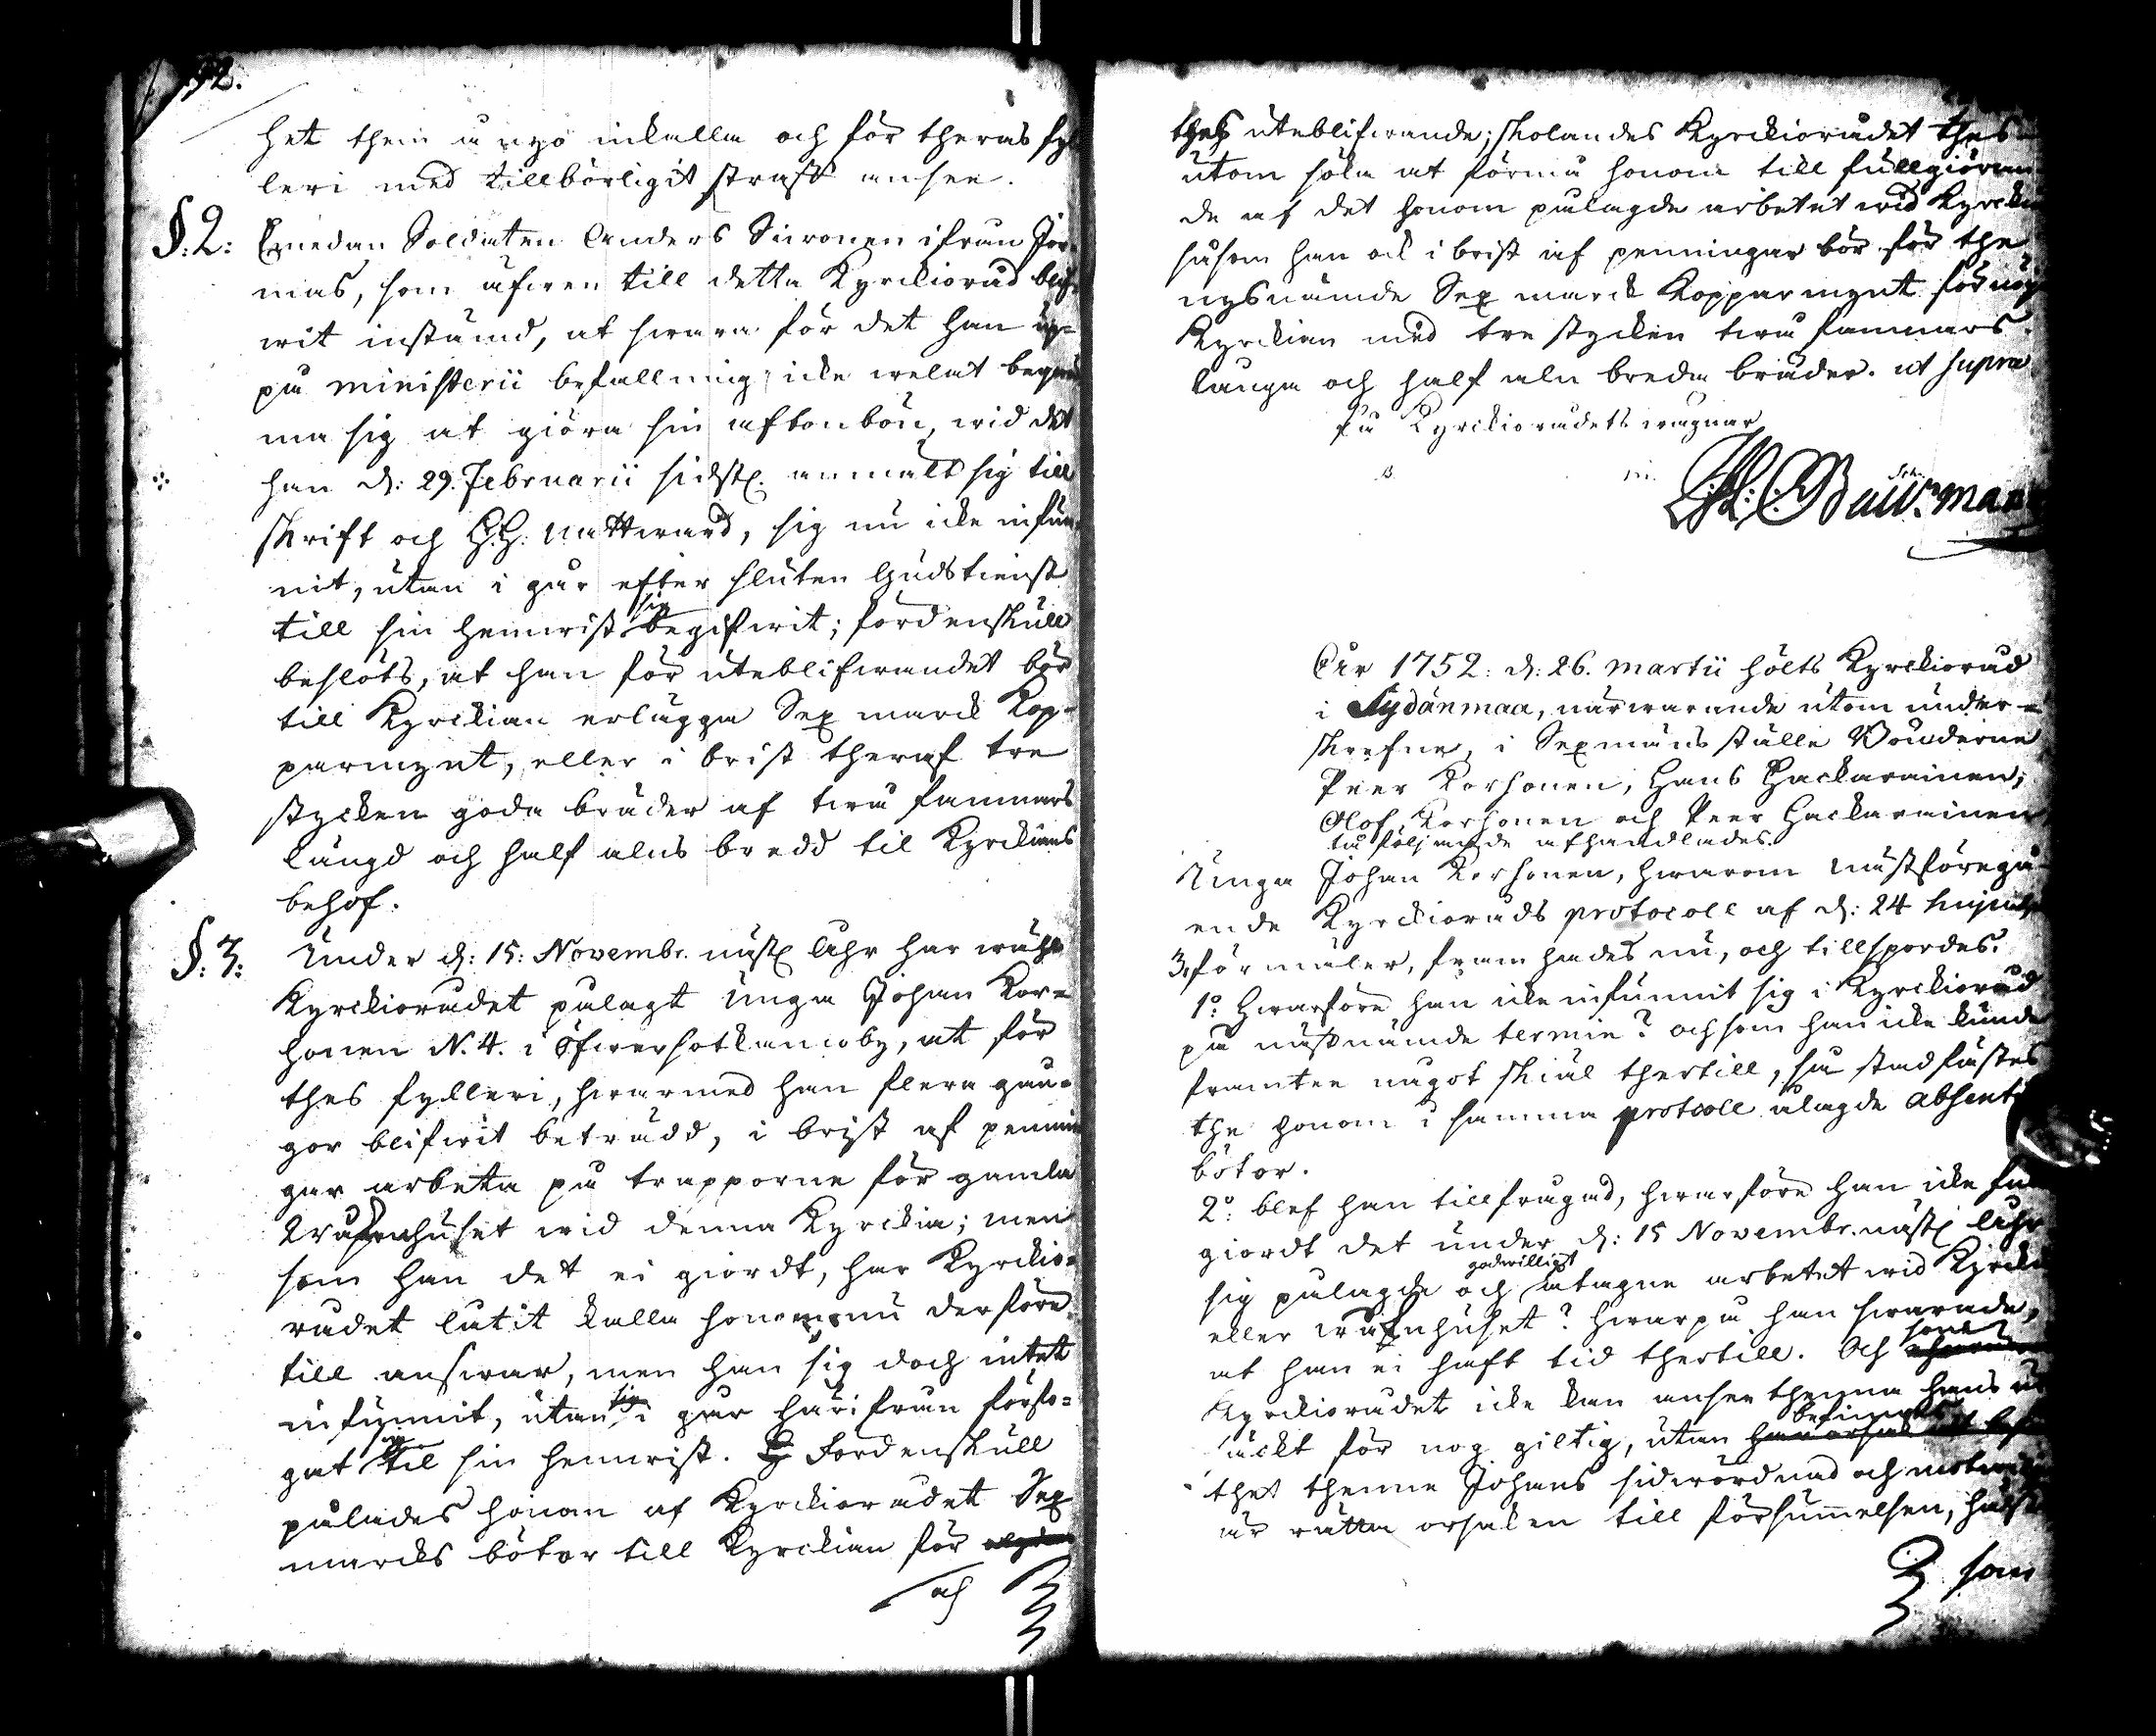 92.
het them a nyo inkalla och för theras fyl-
leri med tillbörligit straff ansee.
§. 2: Emedan Soldaten Anders Siironen ifrån Jor-
mas, som äfwen till detta Kyrckioråd blif-
wit instämd, at swara för det han up-
på ministerii befallning icke welat beqwä-
ma sig at giöra sin aftonbön, wid det
han d: 29. Februarii sidstl. anmält sig till
skrift och H.H. nattward, sig nu icke infun-
nit, utan i går efter sluten Gudstienst
till sin hemwist sig begifwit; fördenskull
beslöts, at han för uteblifwandet bör
till Kyrckian erlägga Sex marck Kop-
parmynt, eller i brist theraf tre
stycken goda bräder af twå famnars
längd och half alns bredd til Kyrckians
behof.
§. 3: Under d: 15: Novembr. nästl. åhr har wähl
Kyrckiorådet pålagt Unga Johan Kor-
honen N. 4. i Öfwersotkamoby, at för
thes fylleri, hwarmed han flera gån-
gor blifwit beträdd, i brist af pennin-
gar arbeta på trapporne för gamla
Wapnhuset wid denna Kyrckia; men
som han det ei giordt, har Kyrckio-
rådet låtit kalla honom nu derföre
till answar, men han sig doch intet
infunnit, utan sig i går härifrån förfo-
gat til sin hemwist. Fördenskull
pålades honom af Kyrckiorådet Sex
marcks böter till Kyrckian för
och
thes uteblifwande; skolandes Kyrckiorådet thes-
utom söka at förmå honom till fullgiöran-
de af det honom pålagde arbetet wid Kyrckian
såsom han ock i brist af penningar bör för the
nysnämde Sex marck Kopparmynt förnöja
Kyrckian med tre stycken twå famnars
långa och half aln breda bräder. ut supra
På Kyrckiorådets wägnar
Åhr 1752: d: 26. martii hölts Kyrckioråd
i Sydänmaa, närwarande utom under-
skrefne, i Sexmäns ställe Bönderne
Peer Korhonen, Hans Hackarainen,
Olof Korhonen och Peer Hackarainen
då följande afhandlades.
Unga Johan Korhonen, hwarom nästföregå-
ende Kyrckioråds protocoll af d: 24 hujus
§ 3, förmäler, framhades nu, och tillspordes.
1:o Hwarföre han icke infunnit sig i Kyrckioråd
på nästnämde termin? och som han icke kunde
framtee något skiäl thertill, så stadfästes
the honom i samma protocoll ålagde absentiæ
böter.
2:o blef han tillfrågad, hwarföre han icke full-
giordt det under d: 15 Novembr. nästl. åhr
sig pålagde och godwilligt åtagne arbetet wid Kyrckio
eller wapnhuset? Hwarpå han swarade,
at han ei haft tid thertill. Och som
Kyrckiorådet icke kan ansee thenna hans ur-
säckt för nog giltig, utan befinnes
thet thenne Johans sidwördnad och
är rätta orsaken till försummelsen,
som